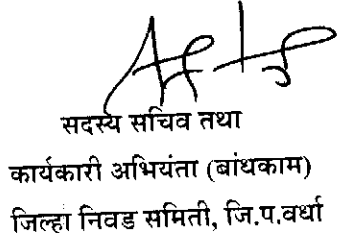 सदस्य सचिव तथा
कार्यकारी अभियंता (बांधकाम)
जिल्हा निवड समिती, जि.प.वर्धा